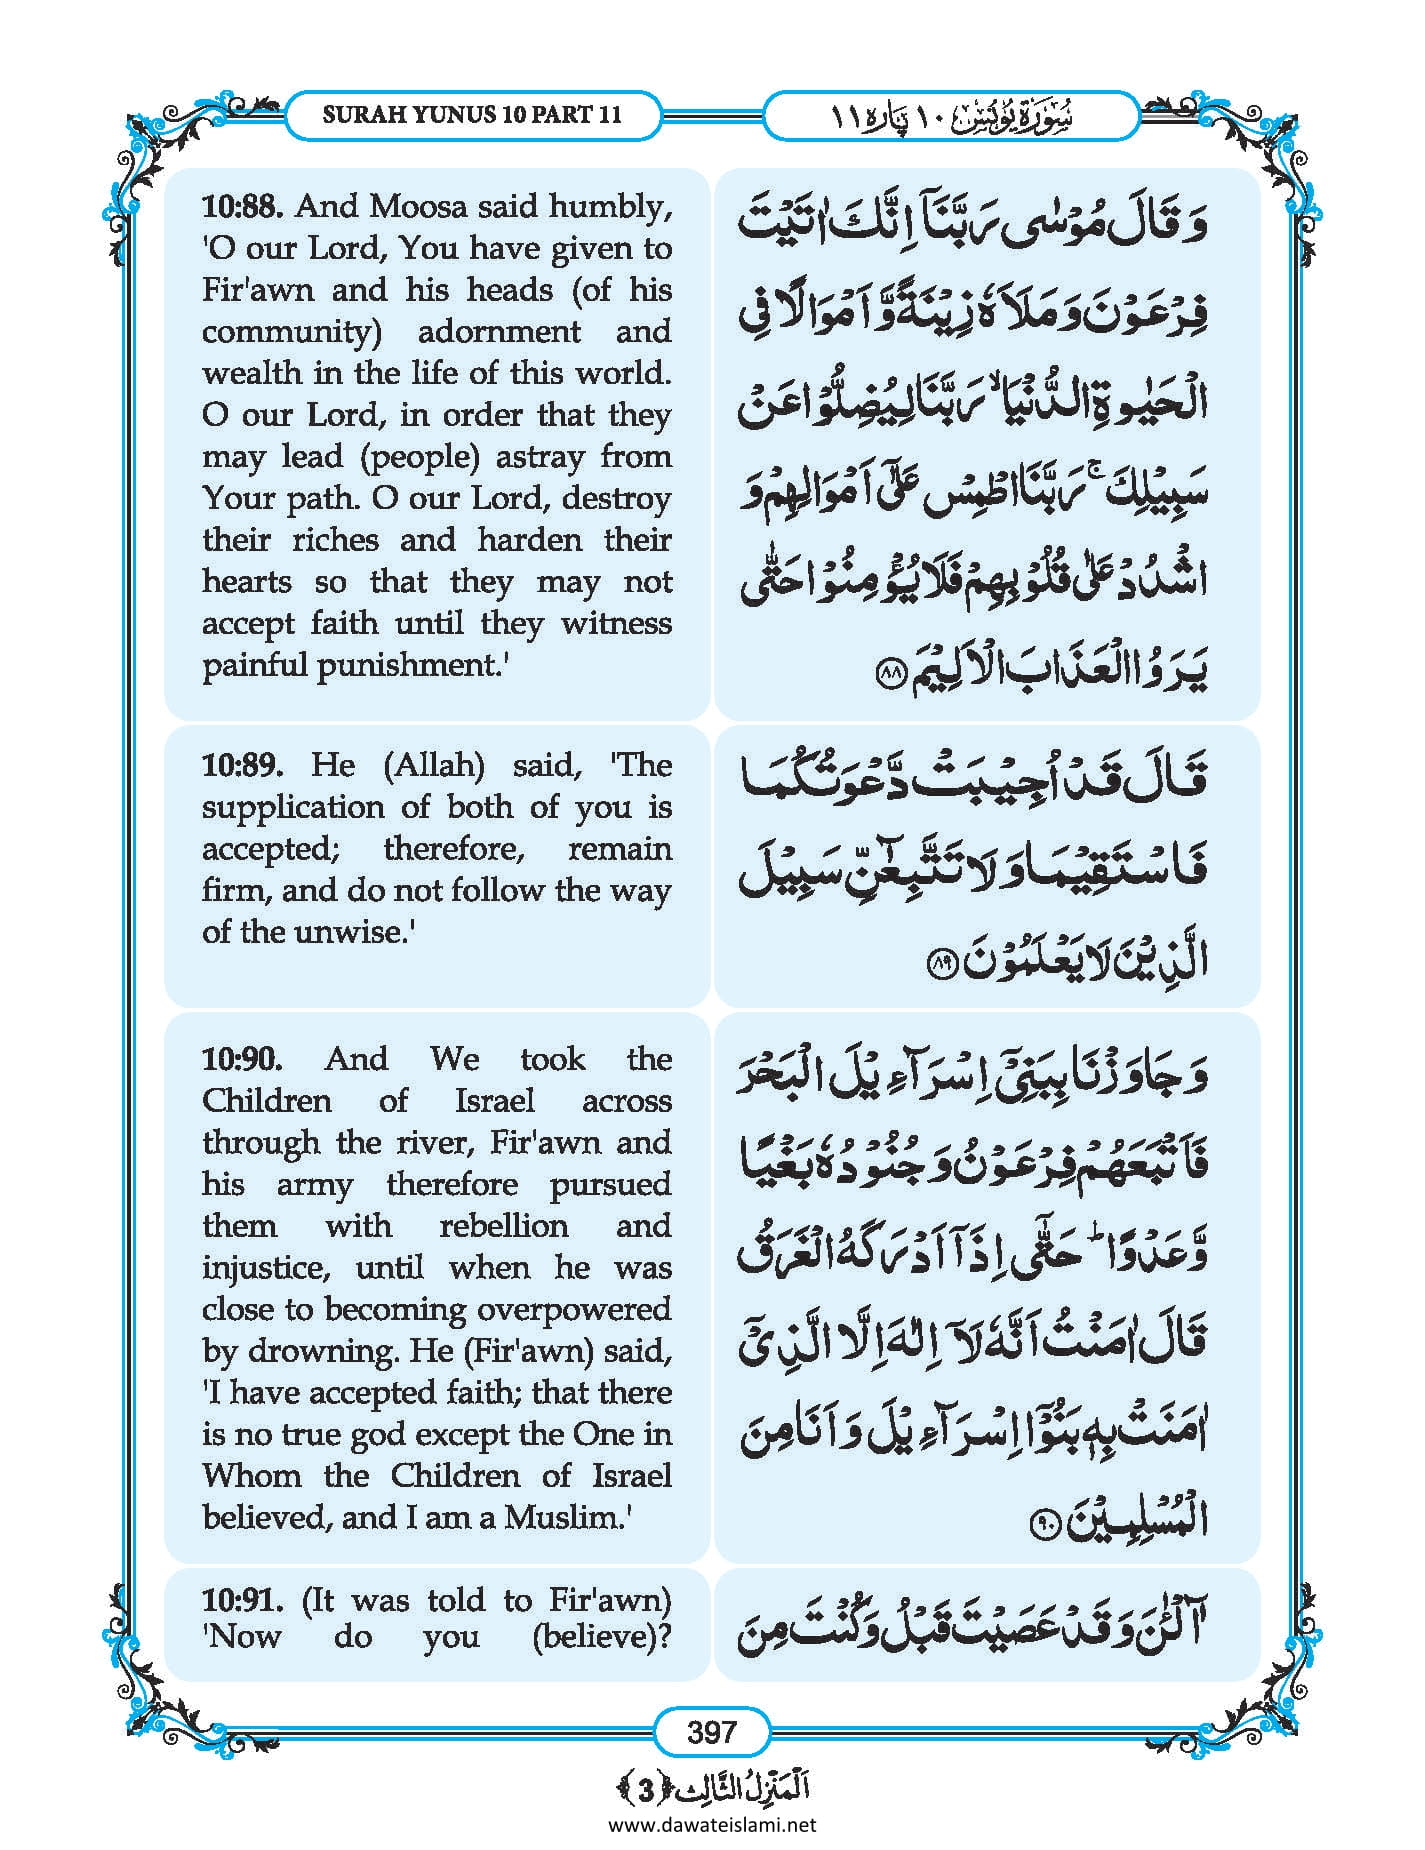 SURAH YUNUS 10 PART 11
سُوْرَةُ يُوْنُس ١٠ پَارَہ ١١
10:88. And Moosa said humbly,
'O our Lord, You have given to
Fir'awn and his heads (of his
community) adornment and
wealth in the life of this world.
O our Lord, in order that they
may lead (people) astray from
Your path. O our Lord, destroy
their riches and harden their
hearts so that they may not
accept faith until they witness
painful punishment.'
وَقَالَ مُوْسٰى رَبَّنَاۤ اِنَّكَ اٰتَيْتَ
فِرْعَوْنَ وَمَلَاَهٗ زِيْنَةً وَّ اَمْوَالًا فِی
الْحَيٰوةِ الدُّنْيَاۙ رَبَّنَا لِيُضِلُّوْا عَنْ
سَبِيْلِكَۚ رَبَّنَا اطْمِسْ عَلٰۤى اَمْوَالِهِمْ وَ
اشْدُدْ عَلٰى قُلُوْبِهِمْ فَلَا يُؤْمِنُوْا حَتّٰى
يَرَوُا الْعَذَابَ الْاَلِيْمَ ﴿٨٨﴾
10:89. He (Allah) said, 'The
supplication of both of you is
accepted; therefore, remain
firm, and do not follow the way
of the unwise.'
قَالَ قَدْ اُجِيْبَتْ دَّعْوَتُكُمَا
فَاسْتَقِيْمَا وَلَا تَتَّبِعٰٓنِّ سَبِيْلَ
الَّذِيْنَ لَا يَعْلَمُوْنَ ﴿٨٩﴾
10:90. And We took the
Children of Israel across
through the river, Fir'awn and
his army therefore pursued
them with rebellion and
injustice, until when he was
close to becoming overpowered
by drowning. He (Fir'awn) said,
'I have accepted faith; that there
is no true god except the One in
Whom the Children of Israel
believed, and I am a Muslim.'
وَجَاوَزْنَا بِبَنِیْۤ اِسْرَآءِيْلَ الْبَحْرَ
فَاَتْبَعَهُمْ فِرْعَوْنُ وَجُنُوْدُهٗ بَغْيًا
وَّعَدْوًاؕ حَتّٰۤى اِذَاۤ اَدْرَكَهُ الْغَرَقُ
قَالَ اٰمَنْتُ اَنَّهٗ لَاۤ اِلٰهَ اِلَّا الَّذِیْۤ
اٰمَنَتْ بِهٖ بَنُوْۤا اِسْرَآءِيْلَ وَاَنَا مِنَ
الْمُسْلِمِيْنَ ﴿٩٠﴾
10:91. (It was told to Fir'awn)
'Now do you (believe)?
آٰلْـٰٔنَ وَقَدْ عَصَيْتَ قَبْلُ وَكُنْتَ مِنَ
397
اَلْمَنْزِلُ الثَّالِث ﴿3﴾
www.dawateislami.net